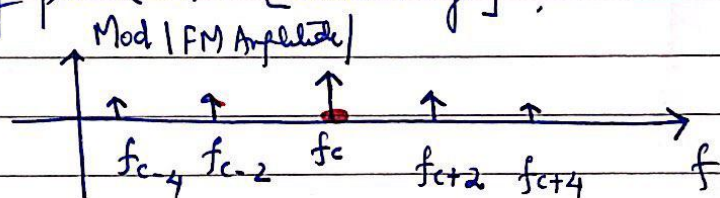 Mod |FM Amplitude|
fc-4 fc-2 fc fc+2 fc+4 f